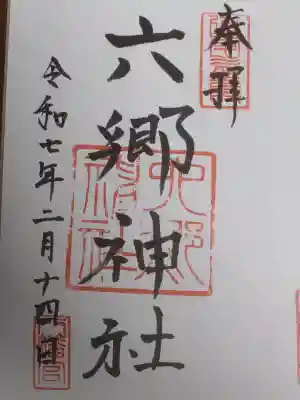 奉拝
六郷神社
令和七年二月十四日